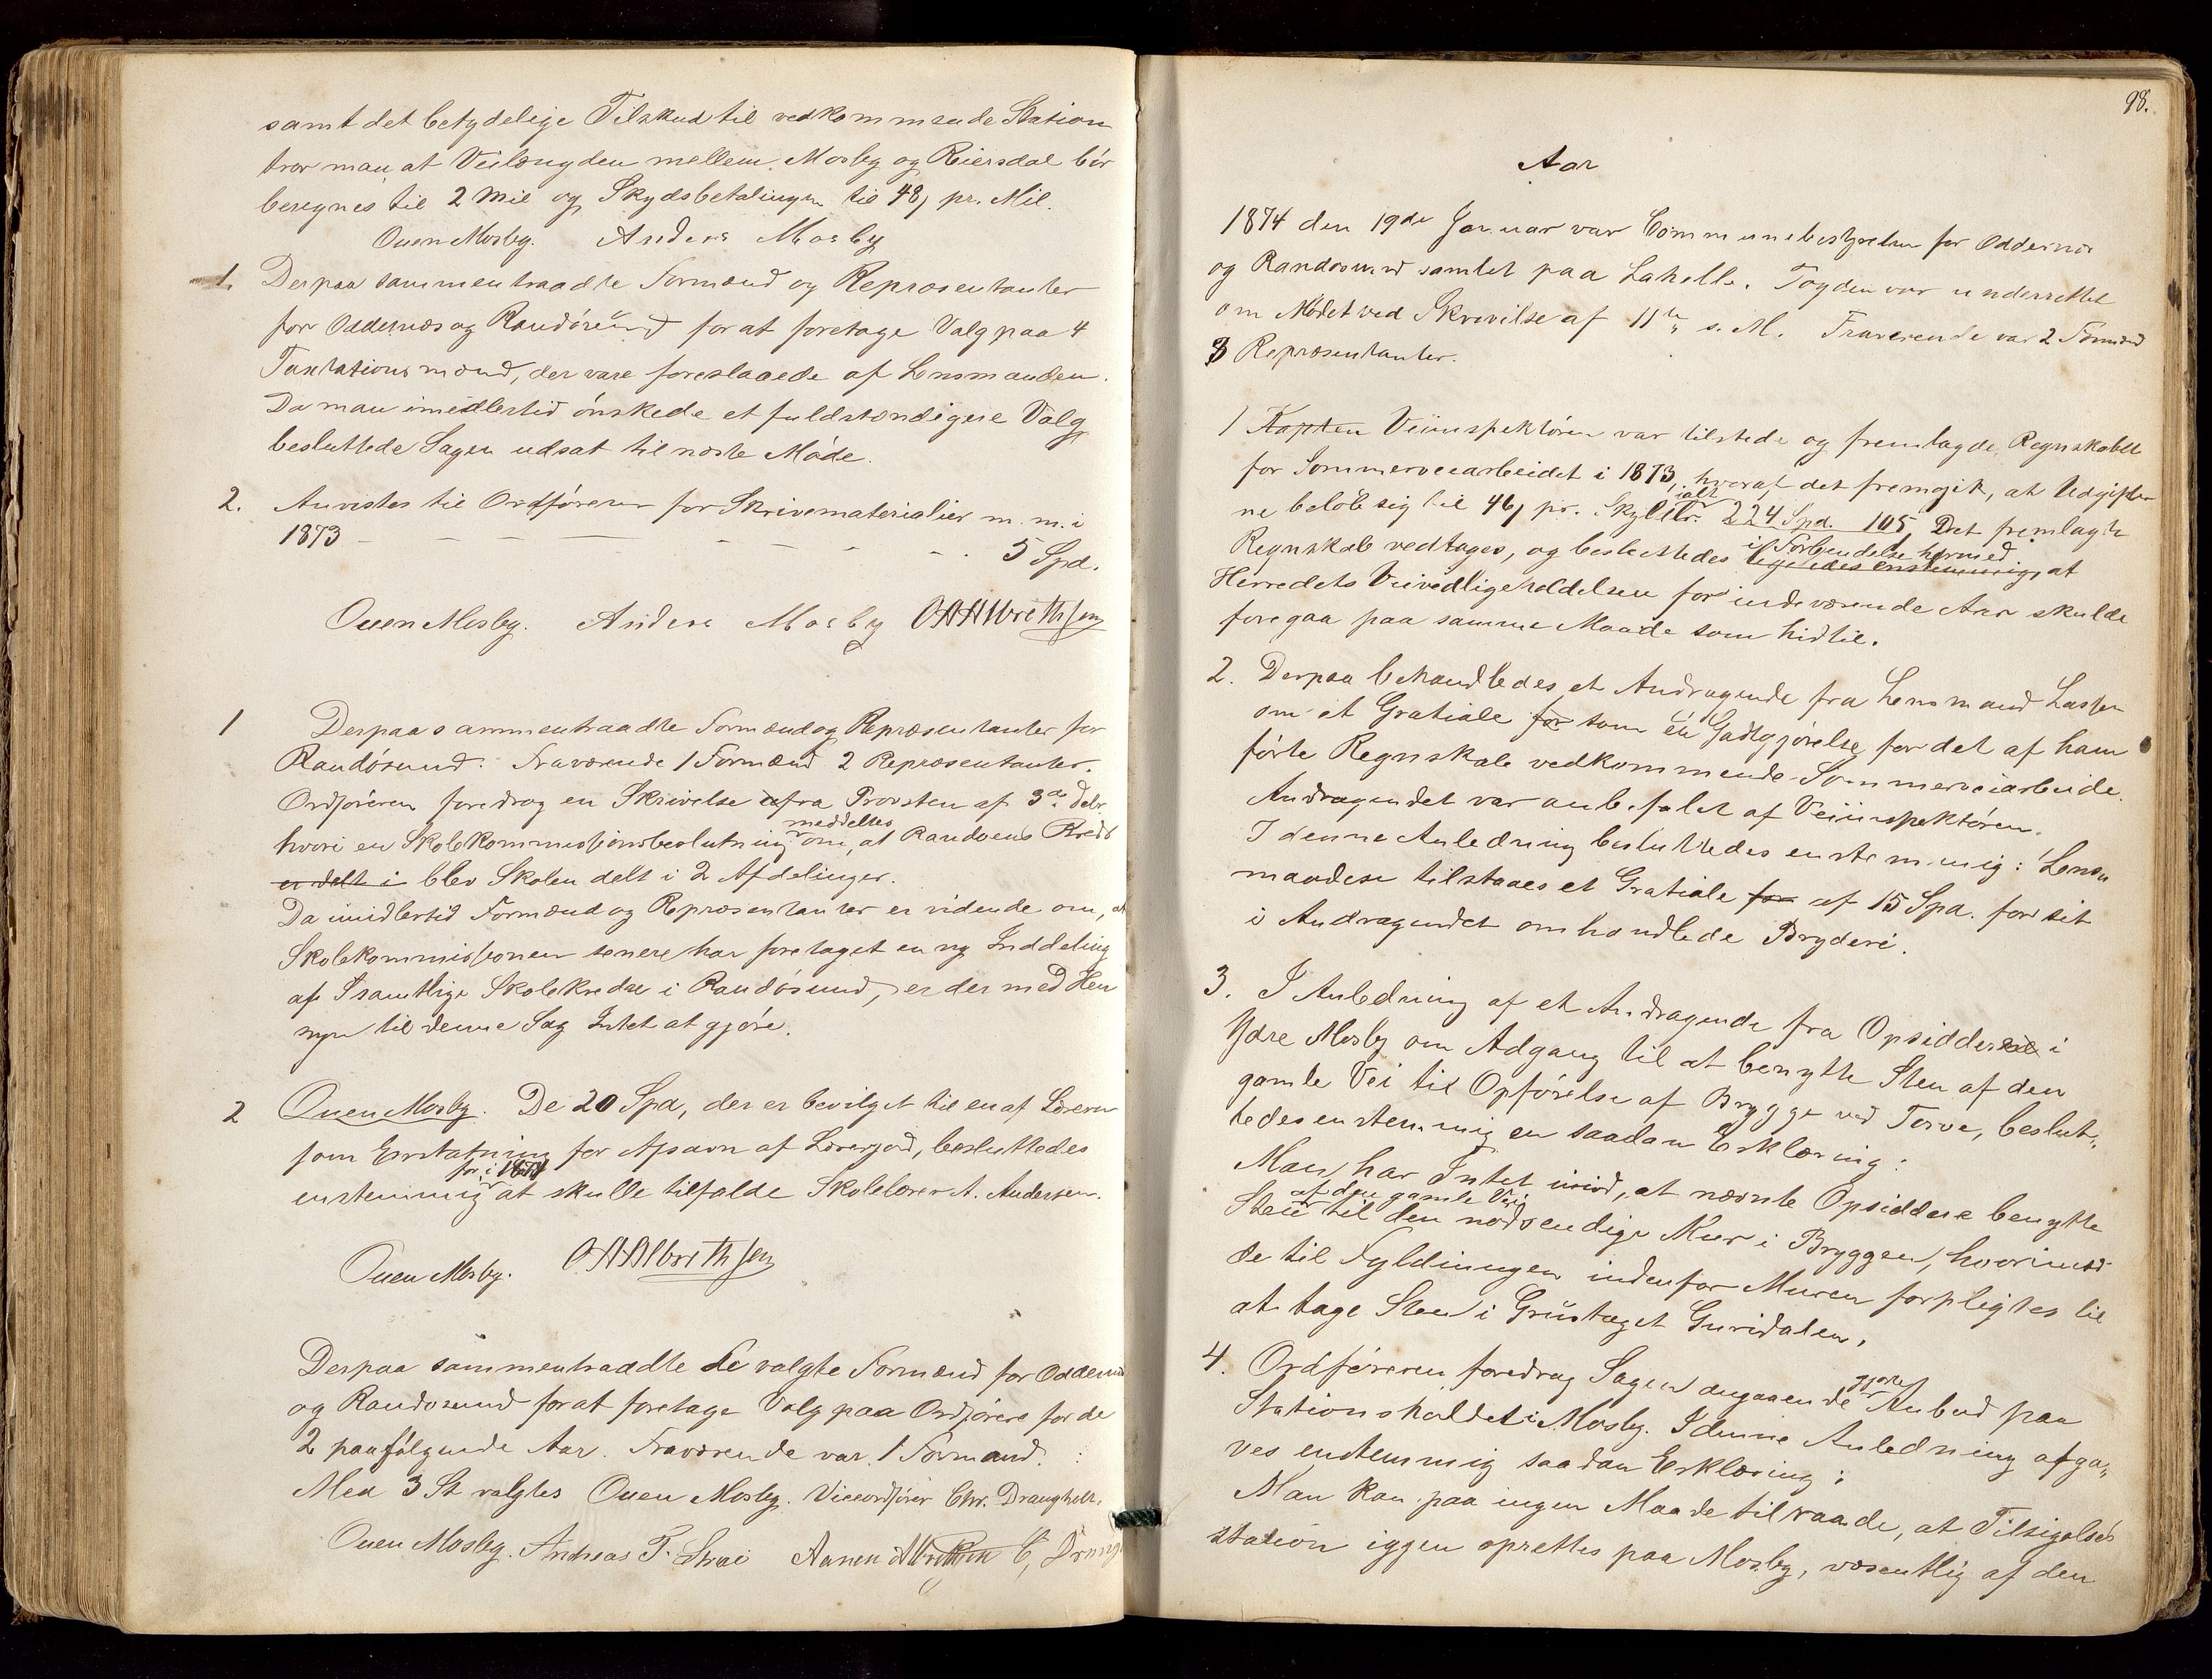 samt det betydelige Tilskud til vedkommende Station
tror man at Veilængden mellem Mosby og Reiersdal bør
beregnes til 2 Mil og Skydsbetalingen til 48 pr. Mil.
Ouen Mosby. Anders Mosby
1. Derpaa sammentraadte Formænd og Repræsentanter
for Oddernæs og Randøsund for at foretage Valg paa 4
Taxtationsmænd, der vare foreslaaede af Lensmanden.
Da man imidlertid ønskede et fuldstændigere Valg
besluttede Sagen udsat til næste Møde.
2. Anvistes til Ordføreren for Skrivematerialier m. m. i
1873 - - - - - - - 5 Spd.
Ouen Mosby. Anders Mosby OAAlbrethsen
1 Derpaa sammentraadte Formænd og Repræsentanter for
Randøsund. Fraværende 1 Formænd 2 Repræsentanter.
Ordføreren foredrog en Skrivelse fra Provsten af 3de Debr.
meddeltes
hvori en Skolekommissionsbeslutning om, at Randøens Kreds
er delt i blev Skolen delt i 2 Afdelinger.
Da imidlertid Formænd og Repræsentanter er vidende om, at
Skolekommissionen senere har foretaget en ny Inddeling
af samtlige Skolekredse i Randøsund, er der med Hen
syn til denne Sag Intet at gjøre.
2 Ouen Mosby. De 20 Spd, der er bevilget til en af Lærerne
som Erstatning for Afsavn af Lærerjord, besluttedes
for i 1874
enstemmig at skulle tilfalde Skolelærer A. Andersen.
Ouen Mosby. OAAlbrethsen
Derpaa sammentraddte de valgte Formænd for Oddernæs
og Randøsund for at foretage Valg paa Ordførere for de
2 paafølgende Aar. Fraværende var 1 Formand.
Med 3 St valgtes Ouen Mosby. Viceordfører Chr. Drangholt.
Ouen Mosby. Andreas T. Strai Aanen Albrethsen C, Drang
98.
Aar
1874 den 19de Januar var Communebestyrelsen for Oddernæs
og Randøsund samlet paa Lahelle. Togden var underrettet
om Mødet ved Skrivilse af 11te s. M. Fraværende var 2 Formænd
3 Repræsentanter.
1 Kapten Veiinspektøren var tilstede og fremlagde Regnskabet
for Sommerveiarbeidet i 1873, hvoraf det fremgik, at Udgifter
ialt
ne beløb sig til 46 pr. Skylddlr. 224 Spd. 105 Det fremlagte
i Forbindelse hermed
Regnskab vedtages, og besluttedes ligeledes enstemmig, at
Herredets Veivedligeholdelsen for indeværende Aar skulde
foregaa paa samme Maade som hidtil.
2. Derpaa behandledes et Andragende fra Lensmand Lassen
om et Gratiale for som en Godtgjørelse for det af ham
førte Regnskab vedkommende Sommerveiarbeide.
Andragendet var anbefalet af Veiinspektøren.
I denne Anledning besluttedes enstemmig: Lens„
mandese tilstaaes et Gratiale for af 15 Spd. for sit
i Andragendet omhandlede Bryderi.
3. I Anledning af et Andragende fra Opsiddere i
Ydre Mosby om Adgang til at benytte Sten af den
gamle Vei til Opførelse af Brygge ved Torve, beslut„
tedes enstemmig en saadan Erklæring:
Man har Intet imod, at nævnte Opsiddere benytte
af den gamle Vei
Sten til den nødvendige Mur i Bryggen, hvorimod
de til Fyldningen indenfor Muren forpligtes til
at tage Sten i Grustaget Guridalen.
4. Ordføreren foredrog Sagen angaaende
gjorte
Anbud paa
Stationsholdet i Mosby. I denne Anledning afga„
ves enstemmig saadan Erklæring:
Man kan paa ingen Maade tilraade, at Tilsigelses
station iggen oprettes paa Mosby, væsentlig af den